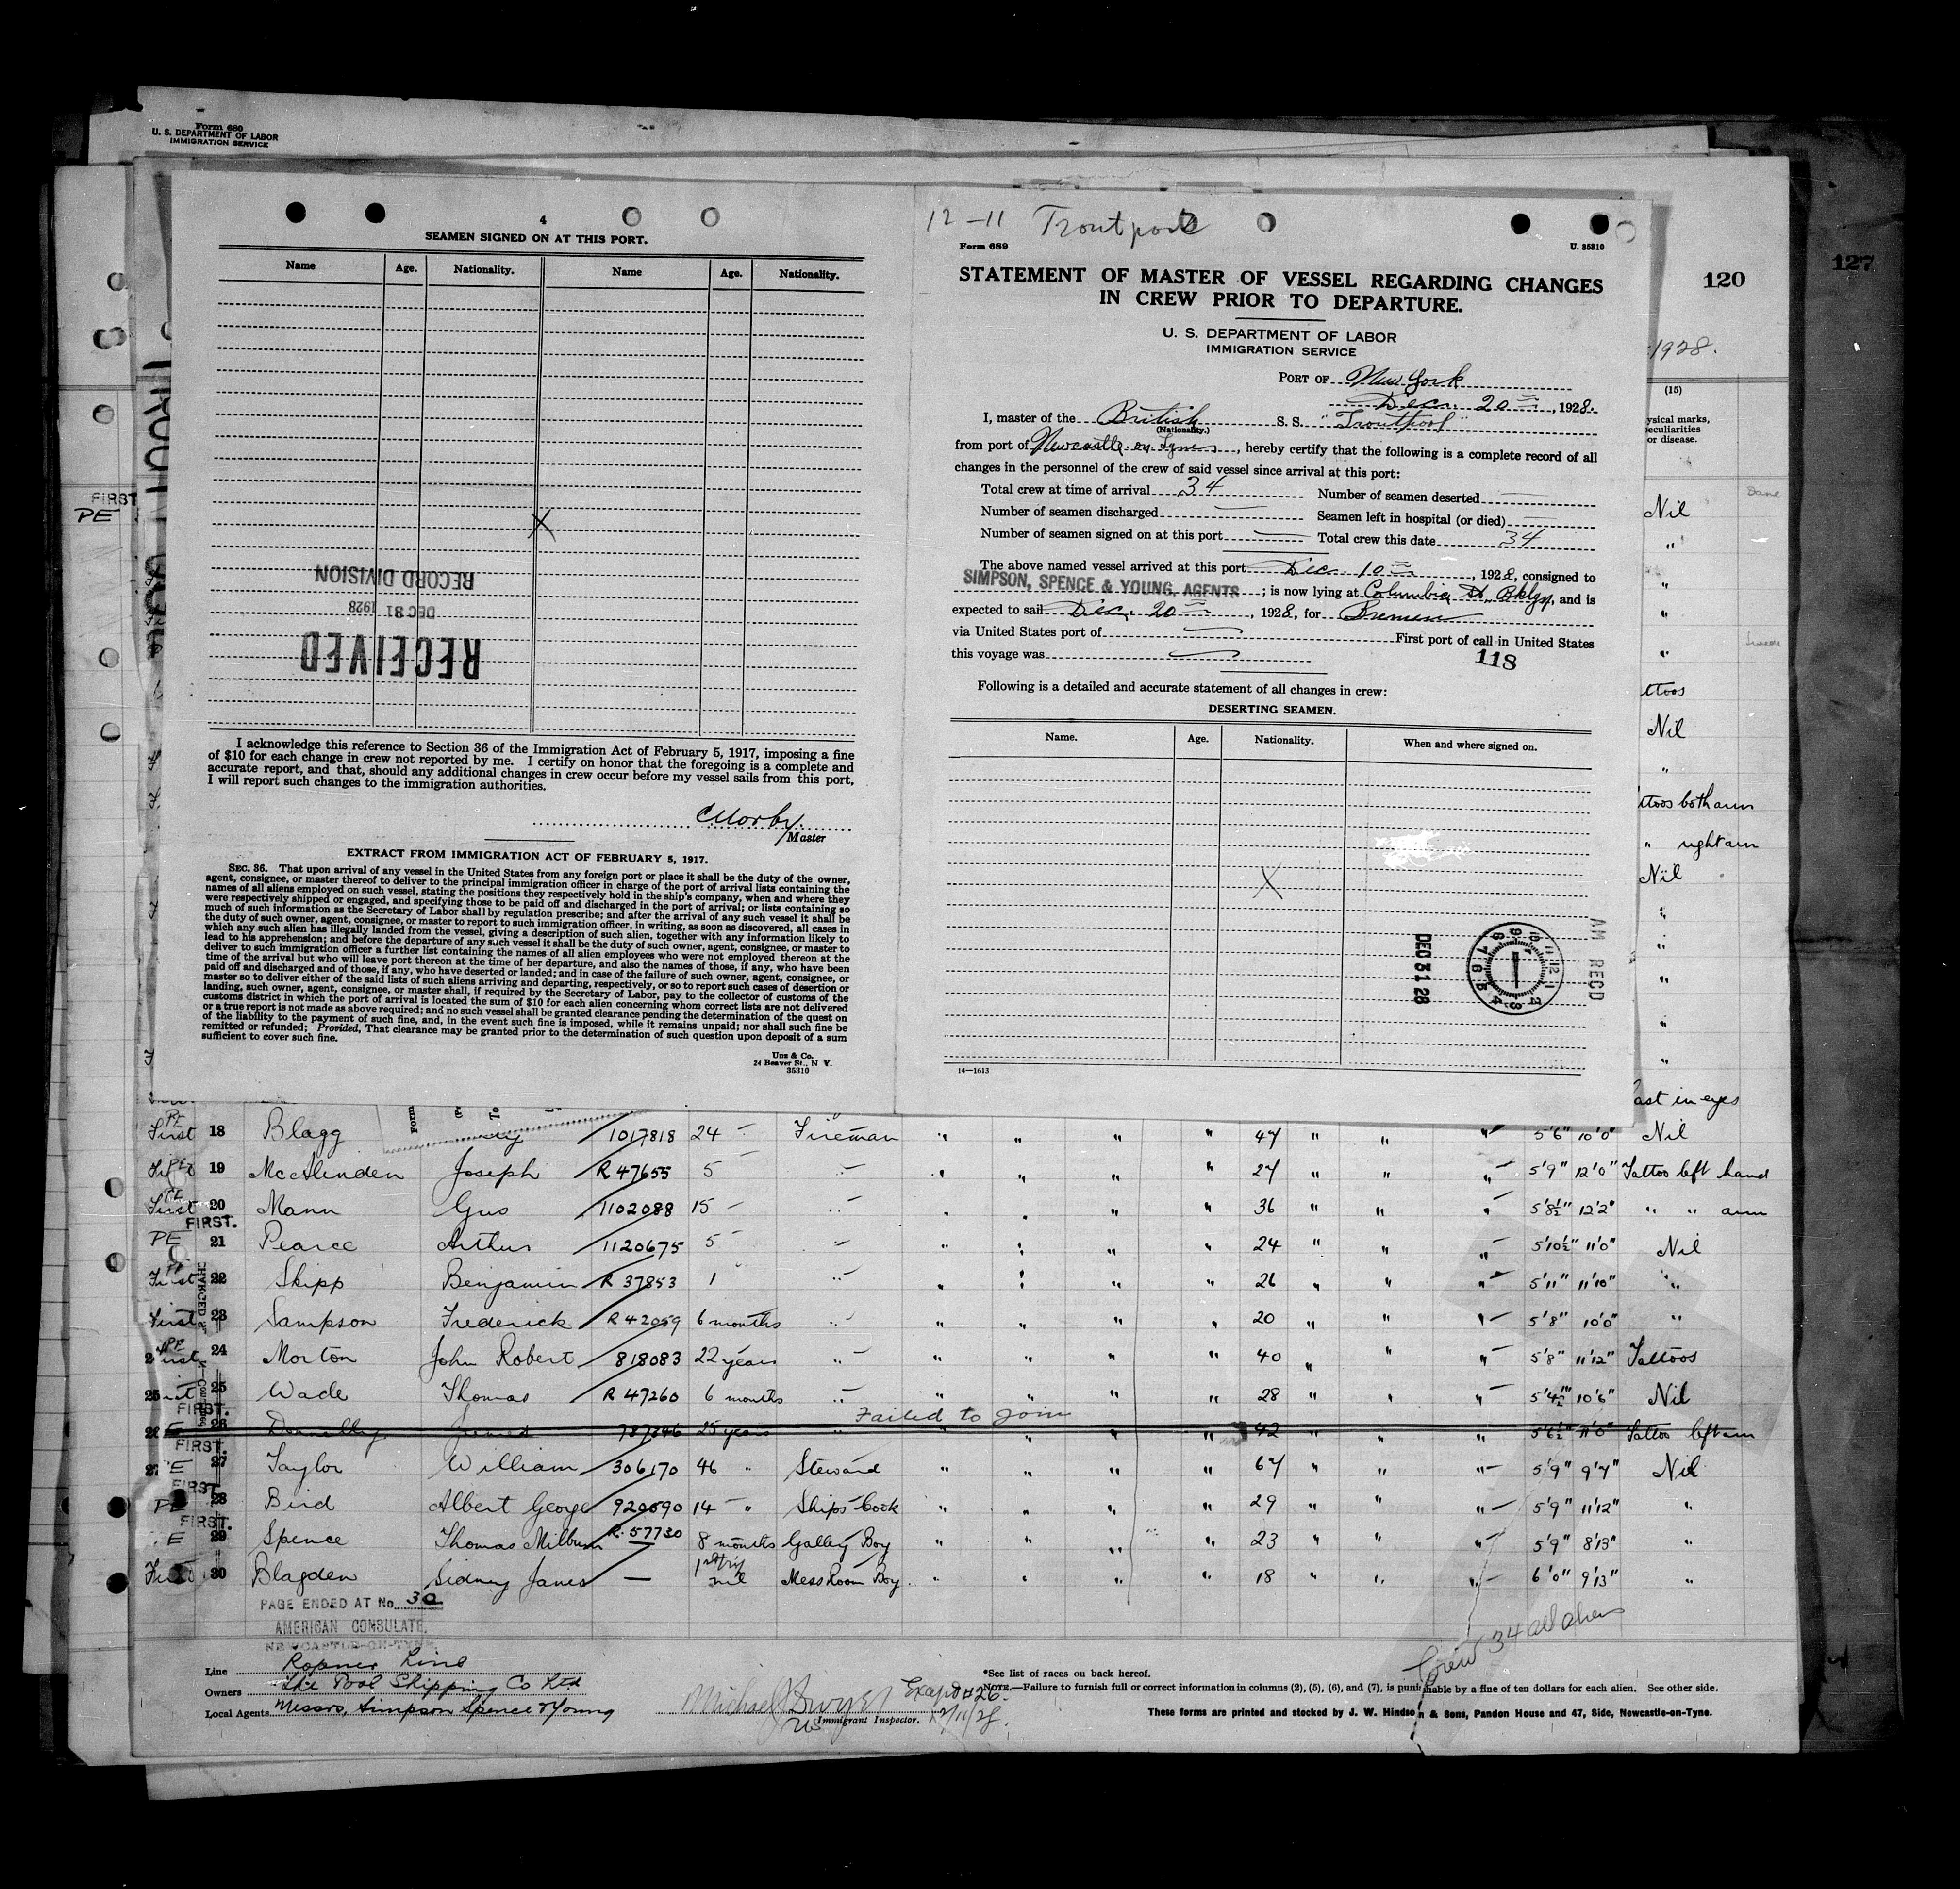 Form 680
U. S. DEPARTMENT OF LABOR
IMMIGRATION SERVICE
4
SEAMEN SIGNED ON AT THIS PORT.
Name Age. Nationality. Name Age. Nationality.
X
RECORD DIVISION
DEC 31 1928
RECEIVED
I acknowledge this reference to Section 36 of the Immigration Act of February 5, 1917, imposing a fine
of $10 for each change in crew not reported by me. I certify on honor that the foregoing is a complete and
accurate report, and that, should any additional changes in crew occur before my vessel sails from this port,
I will report such changes to the immigration authorities.
CMorby
Master
EXTRACT FROM IMMIGRATION ACT OF FEBRUARY 5, 1917.
SEC. 36. That upon arrival of any vessel in the United States from any foreign port or place it shall be the duty of the owner,
agent, consignee, or master thereof to deliver to the principal immigration officer in charge of the port of arrival lists containing the
names of all aliens employed on such vessel, stating the positions they respectively hold in the ship's company, when and where they
were respectively shipped or engaged, and specifying those to be paid off and discharged in the port of arrival; or lists containing so
much of such information as the Secretary of Labor shall by regulation prescribe; and after the arrival of any such vessel it shall be
the duty of such owner, agent, consignee, or master to report to such immigration officer, in writing, as soon as discovered, all cases in
which any such alien has illegally landed from the vessel, giving a description of such alien, together with any information likely to
lead to his apprehension; and before the departure of any such vessel it shall be the duty of such owner, agent, consignee, or master to
deliver to such immigration officer a further list containing the names of all alien employees who were not employed thereon at the
time of the arrival but who will leave port thereon at the time of her departure, and also the names of those, if any, who have been
paid off and discharged and of those, if any, who have deserted or landed; and in case of the failure of such owner, agent, consignee, or
master so to deliver either of the said lists of such aliens arriving and departing, respectively, or so to report such cases of desertion or
landing, such owner, agent, consignee, or master shall, if required by the Secretary of Labor, pay to the collector of customs of the
customs district in which the port of arrival is located the sum of $10 for each alien concerning whom correct lists are not delivered
or a true report is not made as above required; and no such vessel shall be granted clearance pending the determination of the quest on
of the liability to the payment of such fine, and, in the event such fine is imposed, while it remains unpaid; nor shall such fine be
remitted or refunded; Provided, That clearance may be granted prior to the determination of such question upon deposit of a sum
sufficient to cover such fine.
Unz & Co.
24 Beaver St., N Y.
35310
12-11 Troutpool
Form 689
U. 35310
STATEMENT OF MASTER OF VESSEL REGARDING CHANGES
IN CREW PRIOR TO DEPARTURE.
U. S. DEPARTMENT OF LABOR
IMMIGRATION SERVICE
PORT OF New York
Dec. 20th, 1928.
I, master of the British S. S. "Troutpool"
(Nationality.)
from port of Newcastle on Tyne, hereby certify that the following is a complete record of all
changes in the personnel of the crew of said vessel since arrival at this port:
Total crew at time of arrival 34 Number of seamen deserted —
Number of seamen discharged — Seamen left in hospital (or died) —
Number of seamen signed on at this port — Total crew this date 34
The above named vessel arrived at this port Dec. 10th, 1928, consigned to
SIMPSON, SPENCE & YOUNG, AGENTS; is now lying at Columbia St, Bklyn, and is
expected to sail Dec. 20th, 1928, for Bremen
via United States port of — First port of call in United States
this voyage was — 118
Following is a detailed and accurate statement of all changes in crew:
DESERTING SEAMEN.
Name. Age. Nationality. When and where signed on.
X
DEC 31 28
AM RECD
14—1613
120
127
1928.
(15)
ysical marks,
eculiarities
or disease.
FIRST
PE
Nil Dane
"
"
"
" Swede
ttoos
Nil
"
ttoos both arm
" right arm
Nil
"
"
"
"
"
ast in eyes
PE First 18 Blagg 1017818 24 — Fireman " " " " 47 " " " 5'6" 10'0" Nil
19 McAlinden Joseph R 47655 5 — " " " " " 27 " " " 5'9" 12'0" Tattoo left hand
First 20 Mann Gus 1102088 15 — " " " " " 36 " " " 5'8½" 12'2" " " arm
FIRST.
PE 21 Pearce Arthur 1120675 5 — " " " " " 24 " " " 5'10½" 11'0" Nil
First 22 Skipp Benjamin R 37853 1 " " " " " 26 " " " 5'11" 11'10" "
First 23 Sampson Frederick R 42059 6 months " " " " " 20 " " " 5'8" 10'0" "
PE First 24 Morton John Robert 818083 22 years " " " " " 40 " " " 5'8" 11'12" Tattoos
25 Wade Thomas R 47260 6 months " " " " " 28 " " " 5'4½" 10'6" Nil
FIRST. Failed to join
26 Donnelly James 787346 25 years " " " " " 42 " " " 5'6½" 11'0" Tattoo left arm
FIRST.
E 27 Taylor William 306170 46 " Steward " " " " 67 " " " 5'9" 9'7" Nil
FIRST
PE 28 Bird Albert George 920690 14 — " Ships Cook " " " " 29 " " " 5'9" 11'12" "
FIRST.
E 29 Spence Thomas Milburn R. 57730 8 months Galley Boy " " " " 23 " " " 5'9" 8'13" "
First 30 Blagden Sidney James — 1st trip nil Mess Room Boy " " " " 18 " " " 6'0" 9'13" "
PAGE ENDED AT No. 30
AMERICAN CONSULATE,
NEWCASTLE-ON-TYNE.
Crew 34 all aliens
Line Ropner Line
Owners The Pool Shipping Co Ltd
Local Agents Messrs, Simpson Spence & Young
Michael J Dwyer
Immigrant Inspector.
Except #26.
12/11/28.
*See list of races on back hereof.
NOTE.—Failure to furnish full or correct information in columns (2), (5), (6), and (7), is punishable by a fine of ten dollars for each alien. See other side.
These forms are printed and stocked by J. W. Hindson & Sons, Pandon House and 47, Side, Newcastle-on-Tyne.